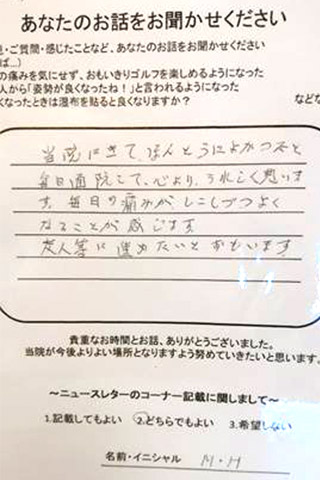 あなたのお話をお聞かせください
・ご質問・感じたことなど、あなたのお話をお聞かせください
ば…)
の痛みを気にせず、おもいきりゴルフを楽しめるようになった
人から「姿勢が良くなったね！」と言われるようになった
くなったときは湿布を貼ると良くなりますか？
などな
当院にきて、ほんとうによかつたと
毎日通院して、心より、うれしく思いま
す、毎日の痛みがしこしづつよく
なることが感じます
友人等に進めたいとおもいます
貴重なお時間とお話、ありがとうございました。
当院が今後よりよい場所となりますよう努めていきたいと思います。
～ニュースレターのコーナー記載に関しまして～
1.記載してもよい 2.どちらでもよい 3.希望しない
名前・イニシャル M・H